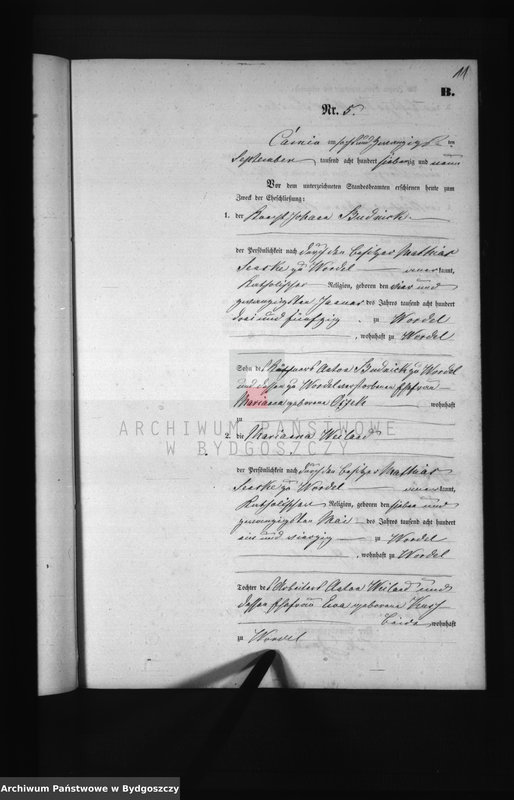 11
B.
Nr. 5.
Czernin am sechs und zwanzigsten
September tausend acht hundert siebenzig und neun
Vor dem unterzeichneten Standesbeamten erschienen heute zum
Zweck der Eheschließung:
1. der Knecht Johann Budnick
der Persönlichkeit nach durch den Besitzer Mathias
zu Wordel kannt,
katholischer Religion, geboren den vier und
zwanzigsten Januar des Jahres tausend acht hundert
drei und fünfzig zu Wordel
, wohnhaft zu Wordel
Sohn des Anton Budnick zu Wordel
und dessen zu Wordel verstorbenen Ehefrau
Marianna geborene wohnhaft
zu
ARCHIWUM PAŃSTWOWE
W BYDGOSZCZY
2. die Marianna Weiland
der Persönlichkeit nach durch den Besitzer Mathias
zu Wordel kannt,
katholischer Religion, geboren den sieben und
zwanzigsten Mai des Jahres tausend acht hundert
ein und vierzig zu Wordel
, wohnhaft zu Wordel
Tochter des Arbeiters Anton Weiland und
dessen Ehefrau Eva geborene
beide wohnhaft
zu Wordel
Archiwum Państwowe w Bydgoszczy